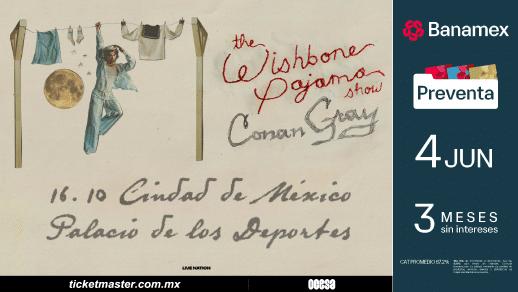 the
Wishbone
Pajama
show
Conan Gray
16. 10 Ciudad de México
Palacio de los Deportes
LIVE NATION
ticketmaster.com.mx
ocesa
Banamex
Preventa
4 JUN
3 MESES
sin intereses